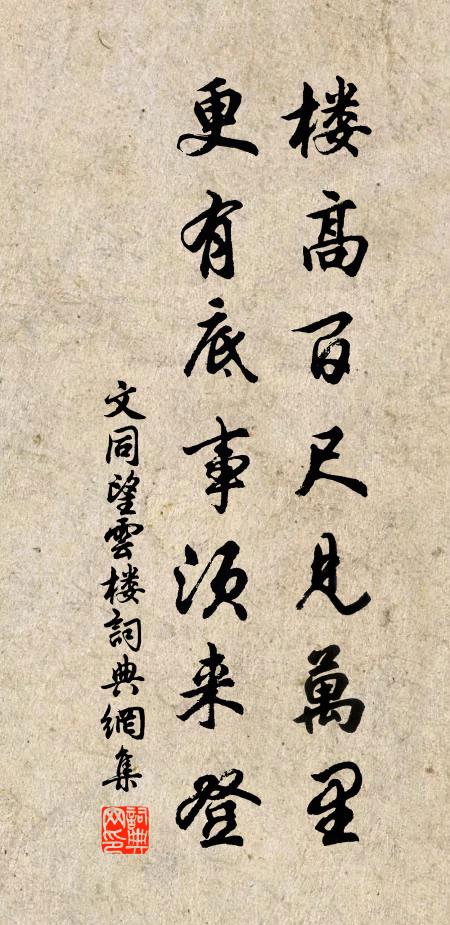 楼高百尺見萬里
更有底事須来登
文同望雲楼詞典網集
詞典網印